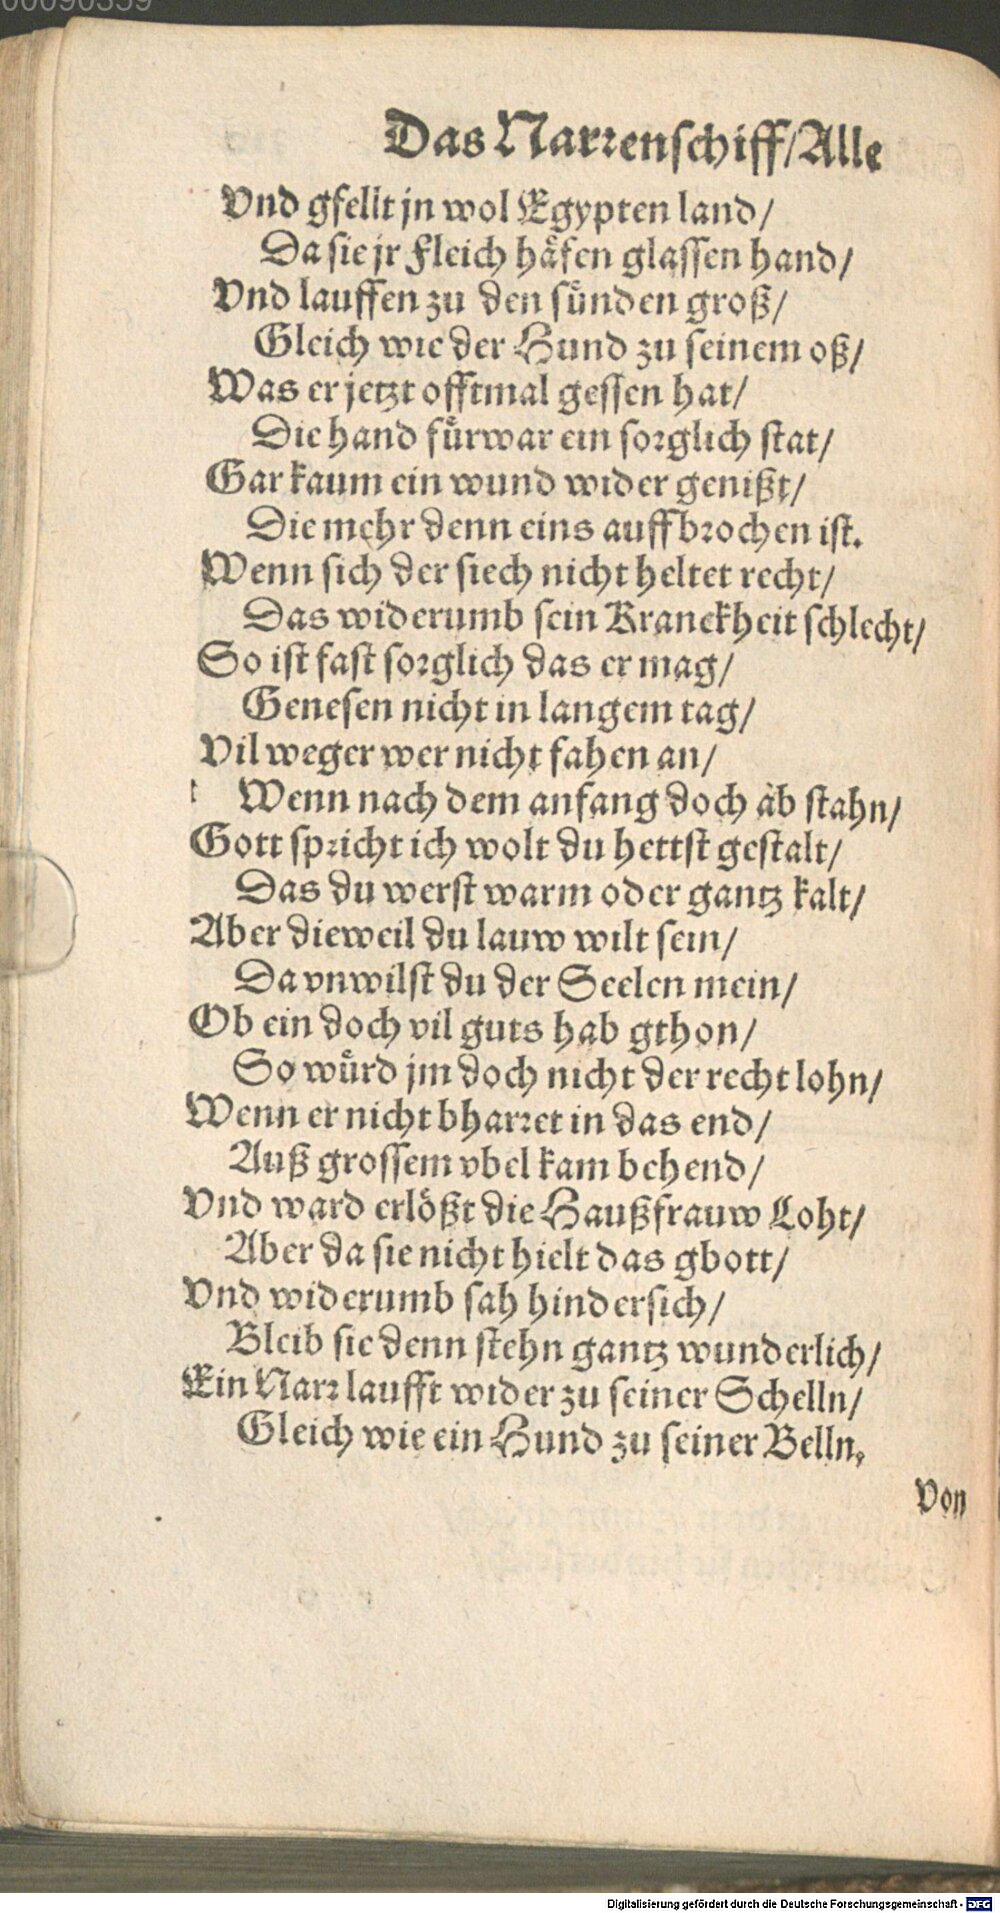 00090359
Das Narrenschiff/Alle
Vnd gfellt jn wol Egypten land/
Da sie jr Fleich häfen glassen hand/
Vnd lauffen zu den sünden groß/
Gleich wie der Hund zu seinem oß/
Was er jetzt offtmal gessen hat/
Die hand fürwar ein sorglich stat/
Gar kaum ein wund wider genißt/
Die mehr denn eins auffbrochen ist.
Wenn sich der siech nicht heltet recht/
Das widerumb sein Kranckheit schlecht/
So ist fast sorglich das er mag/
Genesen nicht in langem tag/
Vil weger wer nicht fahen an/
Wenn nach dem anfang doch ab stahn/
Gott spricht ich wolt du hettst gestalt/
Das du werst warm oder gantz kalt/
Aber dieweil du lauw wilt sein/
Da vnwilst du der Seelen mein/
Ob ein doch vil guts hab gthon/
So würd jm doch nicht der recht lohn/
Wenn er nicht bharret in das end/
Auß grossem vbel kam behend/
Vnd ward erlößt die Haußfrauw Loht/
Aber da sie nicht hielt das gbott/
Vnd widerumb sah hindersich/
Bleib sie denn stehn gantz wunderlich/
Ein Narr laufft wider zu seiner Schelln/
Gleich wie ein Hund zu seiner Belln.
Von
Digitalisierung gefördert durch die Deutsche Forschungsgemeinschaft - DFG